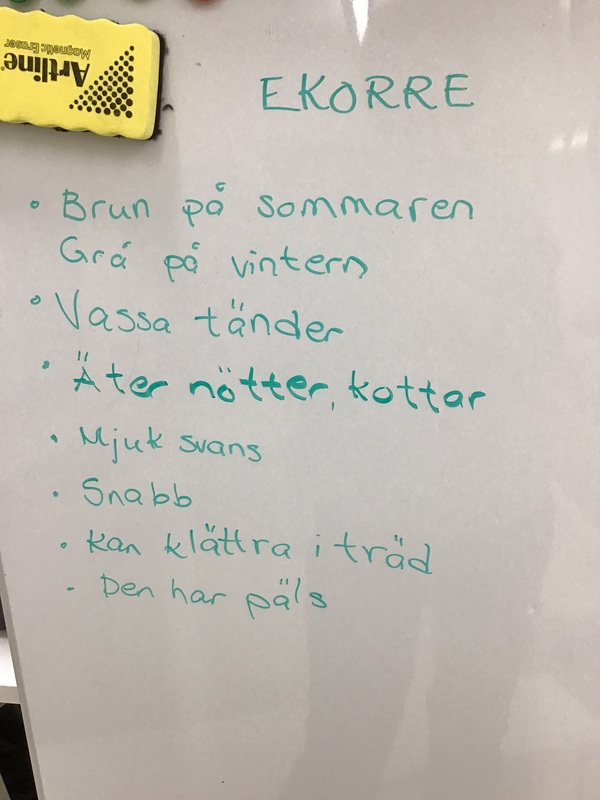 Artline
Magnetic Eraser
EKORRE
• Brun på sommaren
Grå på vintern
• Vassa tänder
• Äter nötter, kottar
• Mjuk svans
• Snabb
• Kan klättra i träd
- Den har päls